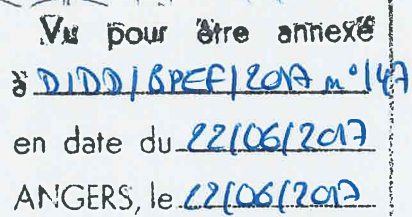 Vu pour être annexé
à DIDD/BPEF/2017 n°147
en date du 22/06/2017
ANGERS, le 22/06/2017